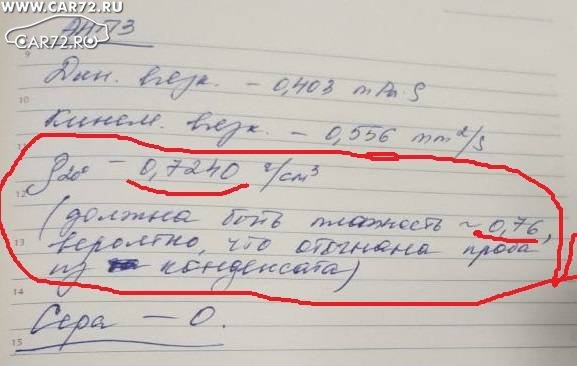 WWW.CAR72.RU
CAR72.RO
АНПЗ
9
Дин. вязк. – 0,403 mPa·S
10
Кинем. вязк. – 0,556 mm²/s
ρ20° – 0,7240 г/см³
12
(должна быть плотность ~ 0,76,
13
вероятно, что отогнана проба
из конденсата)
14
Сера — 0.
15